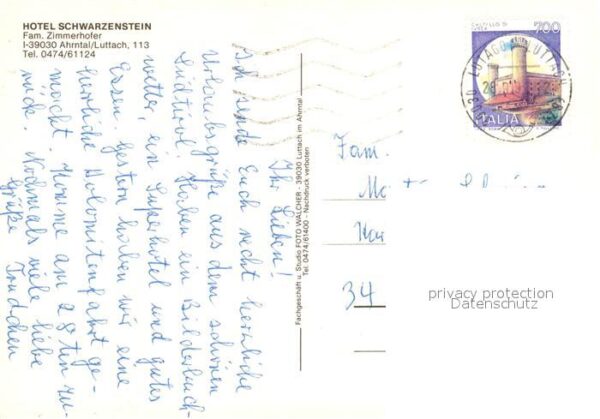 HOTEL SCHWARZENSTEIN
Fam. Zimmerhofer
I-39030 Ahrntal/Luttach, 113
Tel. 0474/61124
Ihr Lieben!
Ich sende Euch recht herzliche
Urlaubsgrüße aus dem schönen
Südtirol. Haben ein Bilderbuch-
wetter, ein Superhotel und gutes
Essen. Gestern haben wir eine
herrliche Dolomitenfahrt ge-
macht. Komme am 28ten zu-
rück. Nochmals viele liebe
Grüße Trudchen
Fachgeschäft u. Studio FOTO WALCHER - 39030 Luttach im Ahrntal
Tel. 0474/61400 - Nachdruck verboten
700
ITALIA
LUTAGO LUTTACH
Fam.
34
privacy protection
Datenschutz